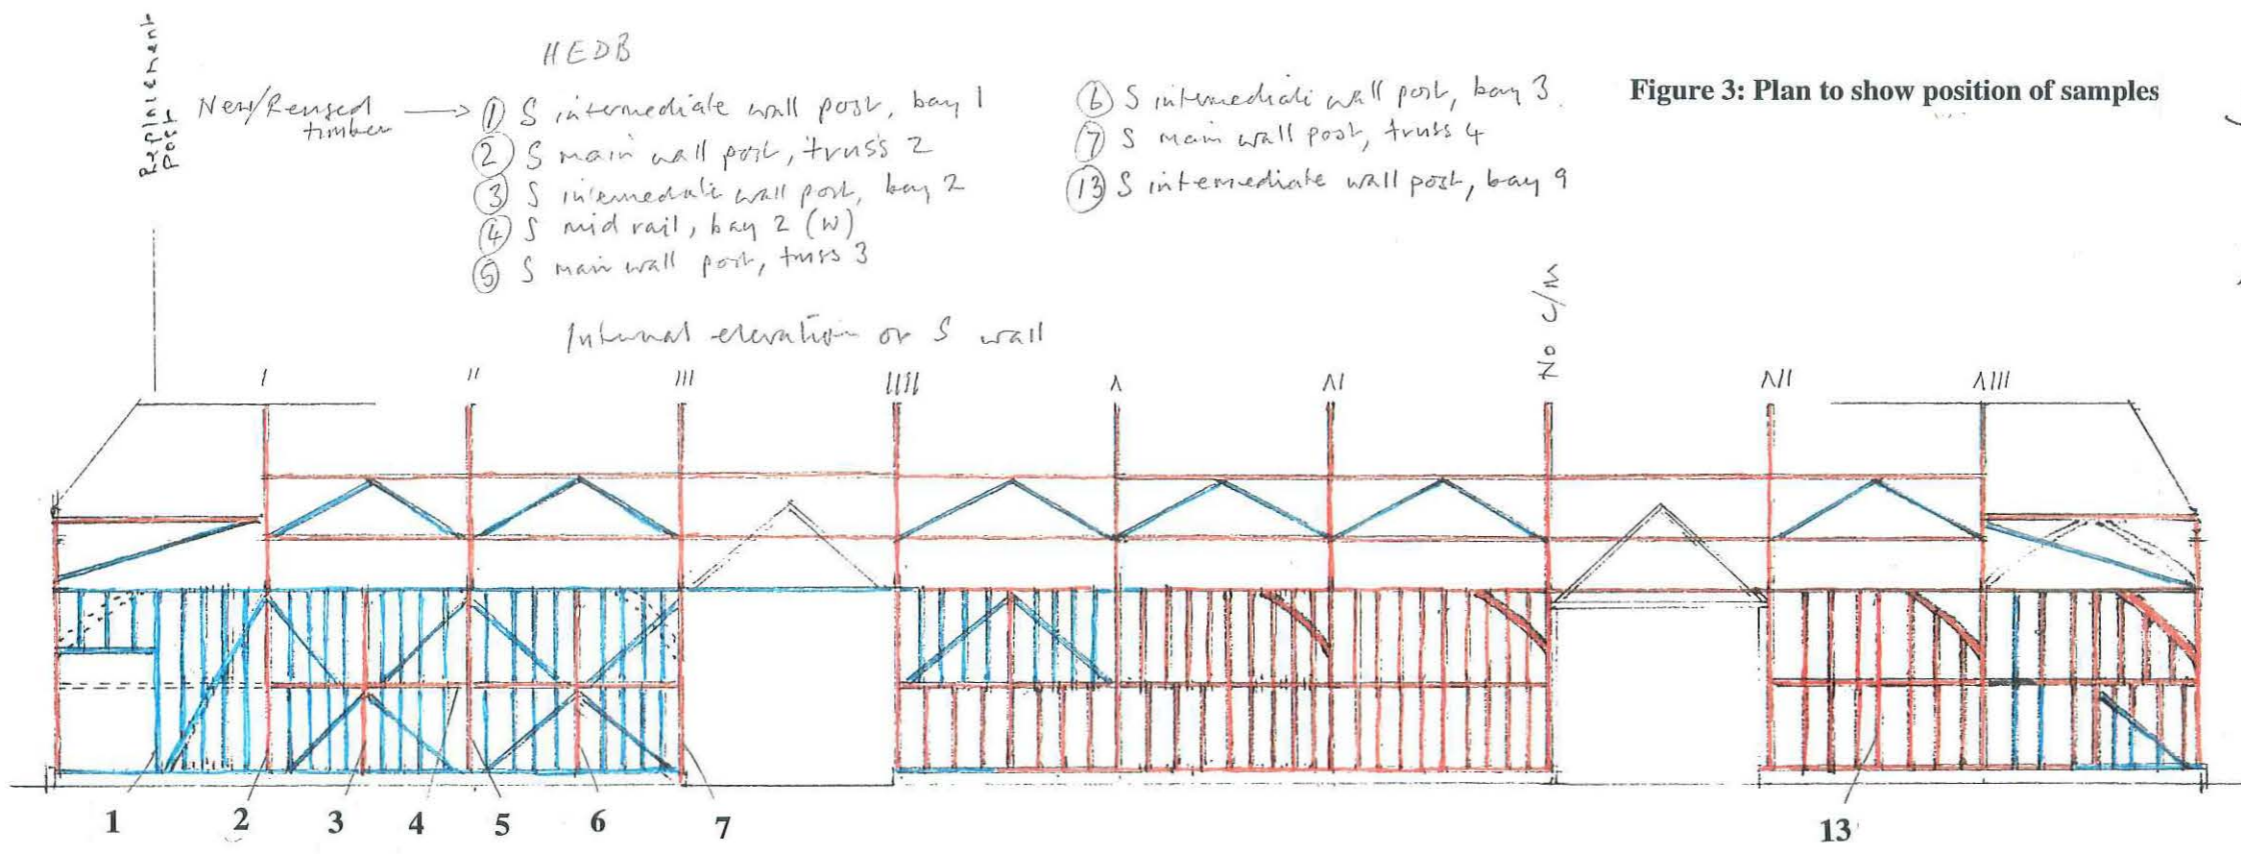 Replacement
Post
HEDB
New/Reused
timber
① S intermediate wall post, bay 1
② S main wall post, truss 2
③ S intermediate wall post, bay 2
④ S mid rail, bay 2 (W)
⑤ S main wall post, truss 3
⑥ S intermediate wall post, bay 3.
⑦ S main wall post, truss 4
⑬ S intermediate wall post, bay 9
Figure 3: Plan to show position of samples
Internal elevation of S wall
I II III IIII Λ ΛI No C/M ΛII ΛIII
1 2 3 4 5 6 7 13